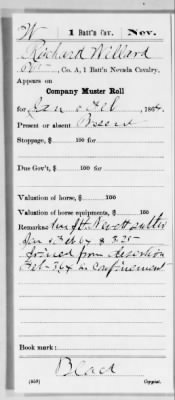 W 1 Batt'n Cav. Nev.
Richard Willard
Pvt, Co. A, 1 Batt'n Nevada Cavalry.
Appears on
Company Muster Roll
for Jan & Feb, 1864.
Present or absent Present
Stoppage, $ 100 for
Due Gov't, $ 100 for
Valuation of horse, $ 100
Valuation of horse equipments, $ 100
Remarks: sutler
Jan & Feb 64 $ 3.25
Joined from desertion
Feb 3/64 in confinement
Book mark:
(359) Copyist.